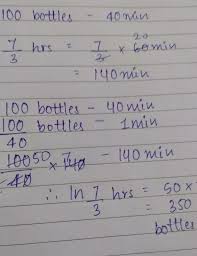 100 bottles - 40 min
7/3 hrs = 7/3 x 60 20 min
= 140 min
100 bottles - 40 min
100/40 bottles - 1 min
100 50/40 x 7 140 - 140 min
∴ In 7/3 hrs = 50 x
= 350
bottles